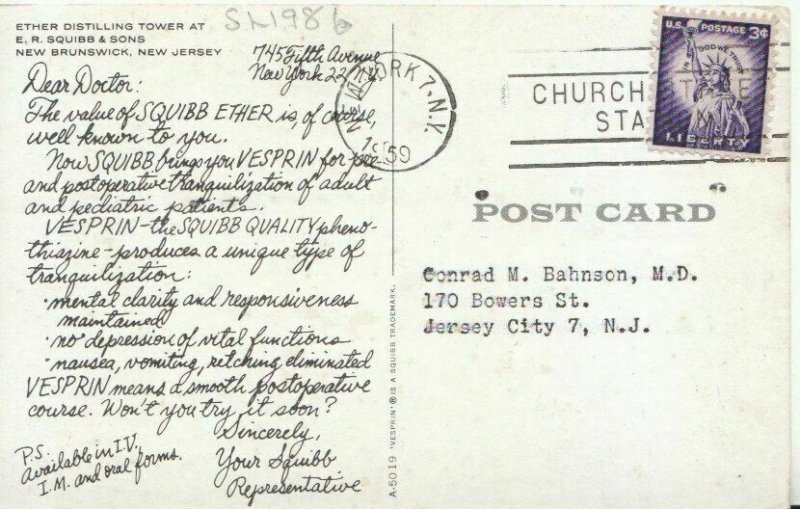 ETHER DISTILLING TOWER AT
E. R. SQUIBB & SONS
NEW BRUNSWICK, NEW JERSEY
SL1986
745 Fifth Avenue
New York 22, N.Y.
Dear Doctor:
The value of SQUIBB ETHER is, of course,
well known to you.
Now SQUIBB brings you VESPRIN for pre-
and postoperative tranquilization of adult
and pediatric patients.
VESPRIN-the SQUIBB QUALITY pheno-
thiazine-produces a unique type of
tranquilization:
· mental clarity and responsiveness
maintained
· no depression of vital functions
· nausea, vomiting, retching eliminated
VESPRIN means a smooth postoperative
course. Won't you try it soon?
Sincerely,
Your Squibb
Representative
P.S.
Available in I.V.,
I.M. and oral forms.
A-5019 'VESPRIN'® IS A SQUIBB TRADEMARK.
NEW YORK 7, N.Y.
1959
CHURCH
STA
U.S. POSTAGE 3¢
IN GOD WE TRUST
LIBERTY
POST CARD
Conrad M. Bahnson, M.D.
170 Bowers St.
Jersey City 7, N.J.